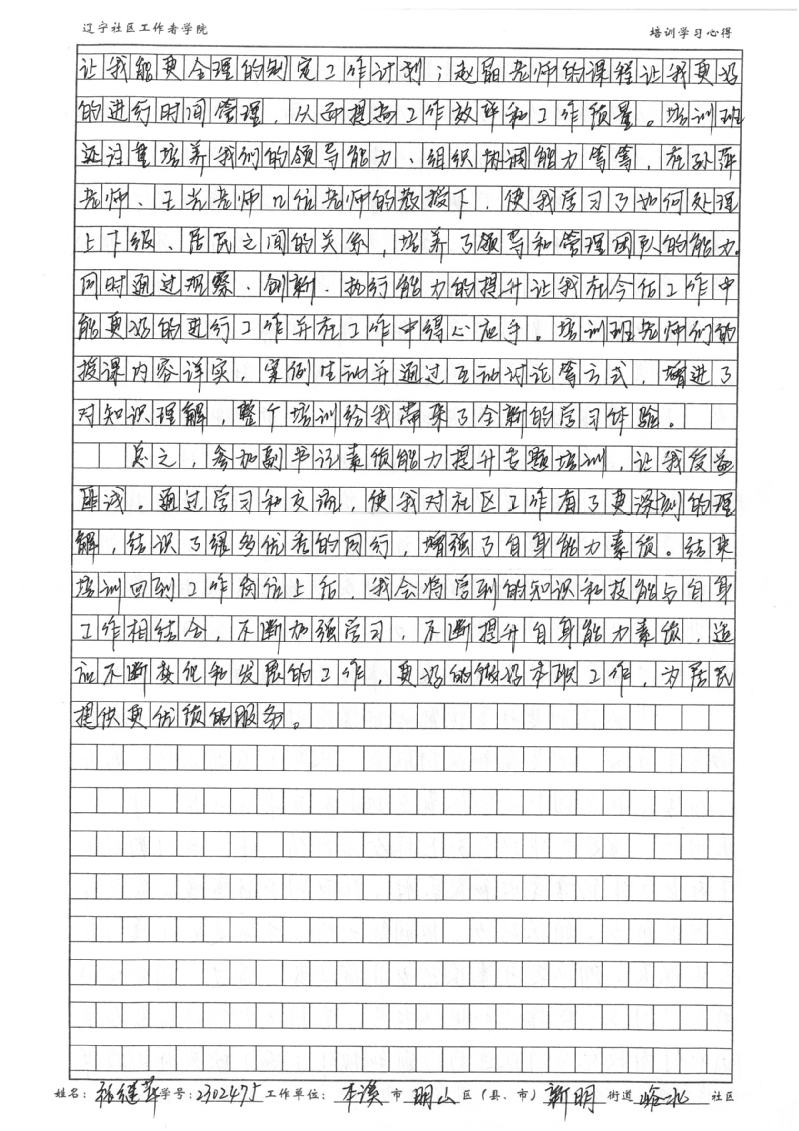 辽宁社区工作者学院 培训学习心得
让我能更合理的制定工作计划；赵丽老师的课程让我更好
的进行时间管理，从而提高工作效率和工作质量。培训班
还注重培养我们的领导能力、组织协调能力等等，在孙萍
老师、王光老师几位老师的教授下，使我学习了如何处理
上下级、居民之间的关系，培养了领导和管理团队的能力。
同时通过观察、创新、执行能力的提升让我在今后工作中
能更好的进行工作并在工作中得心应手。培训班老师们的
授课内容详实，案例生动并通过互动讨论等方式，增进了
对知识理解，整个培训给我带来了全新的学习体验。
总之，参加副书记素质能力提升专题培训，让我受益
匪浅。通过学习和交流，使我对社区工作有了更深刻的理
解，结识了很多优秀的同行，增强了自身能力素质。结束
培训回到工作岗位上后，我会将学到的知识和技能与自身
工作相结合，不断加强学习，不断提升自身能力素质，适
应不断变化和发展的工作，更好的做好本职工作，为居民
提供更优质的服务。
姓名： 学号：2302475 工作单位： 本溪 市 明山 区（县、市） 新明 街道 峪北 社区